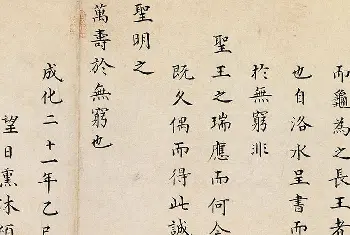 而龜為之長王者
也自洛水呈書而
於無窮非
聖王之瑞應而何今
既久偶而得此誠
聖明之
萬壽於無窮也
成化二十一年乙巳
望日熏沐頓